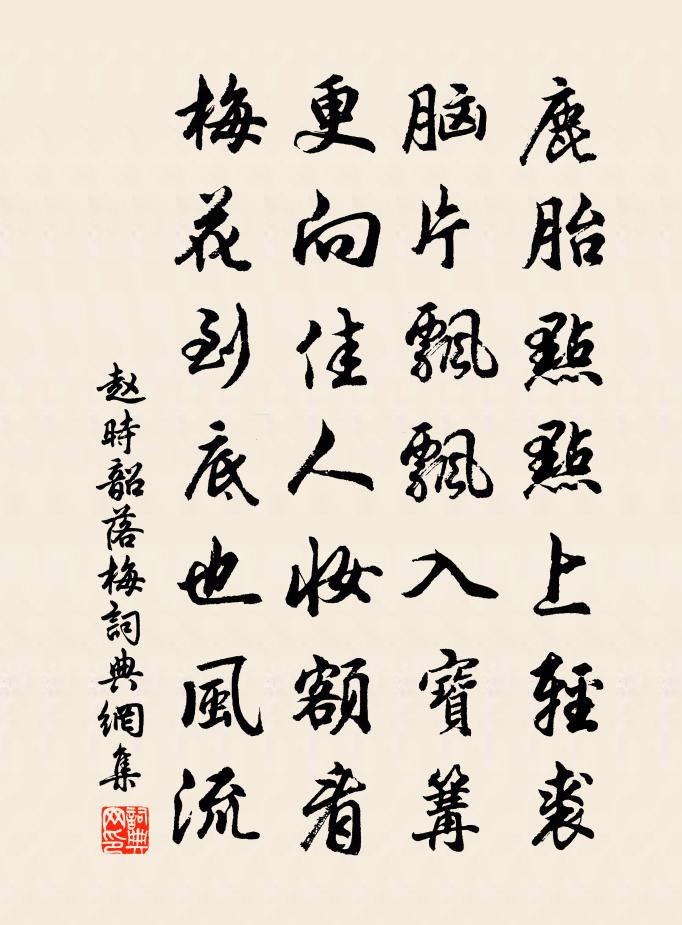 鹿胎點點上輕裘
脑片飄飄入寶篝
更向佳人妆額看
梅花到底也風流
赵時韶落梅詞典網集
詞典网印